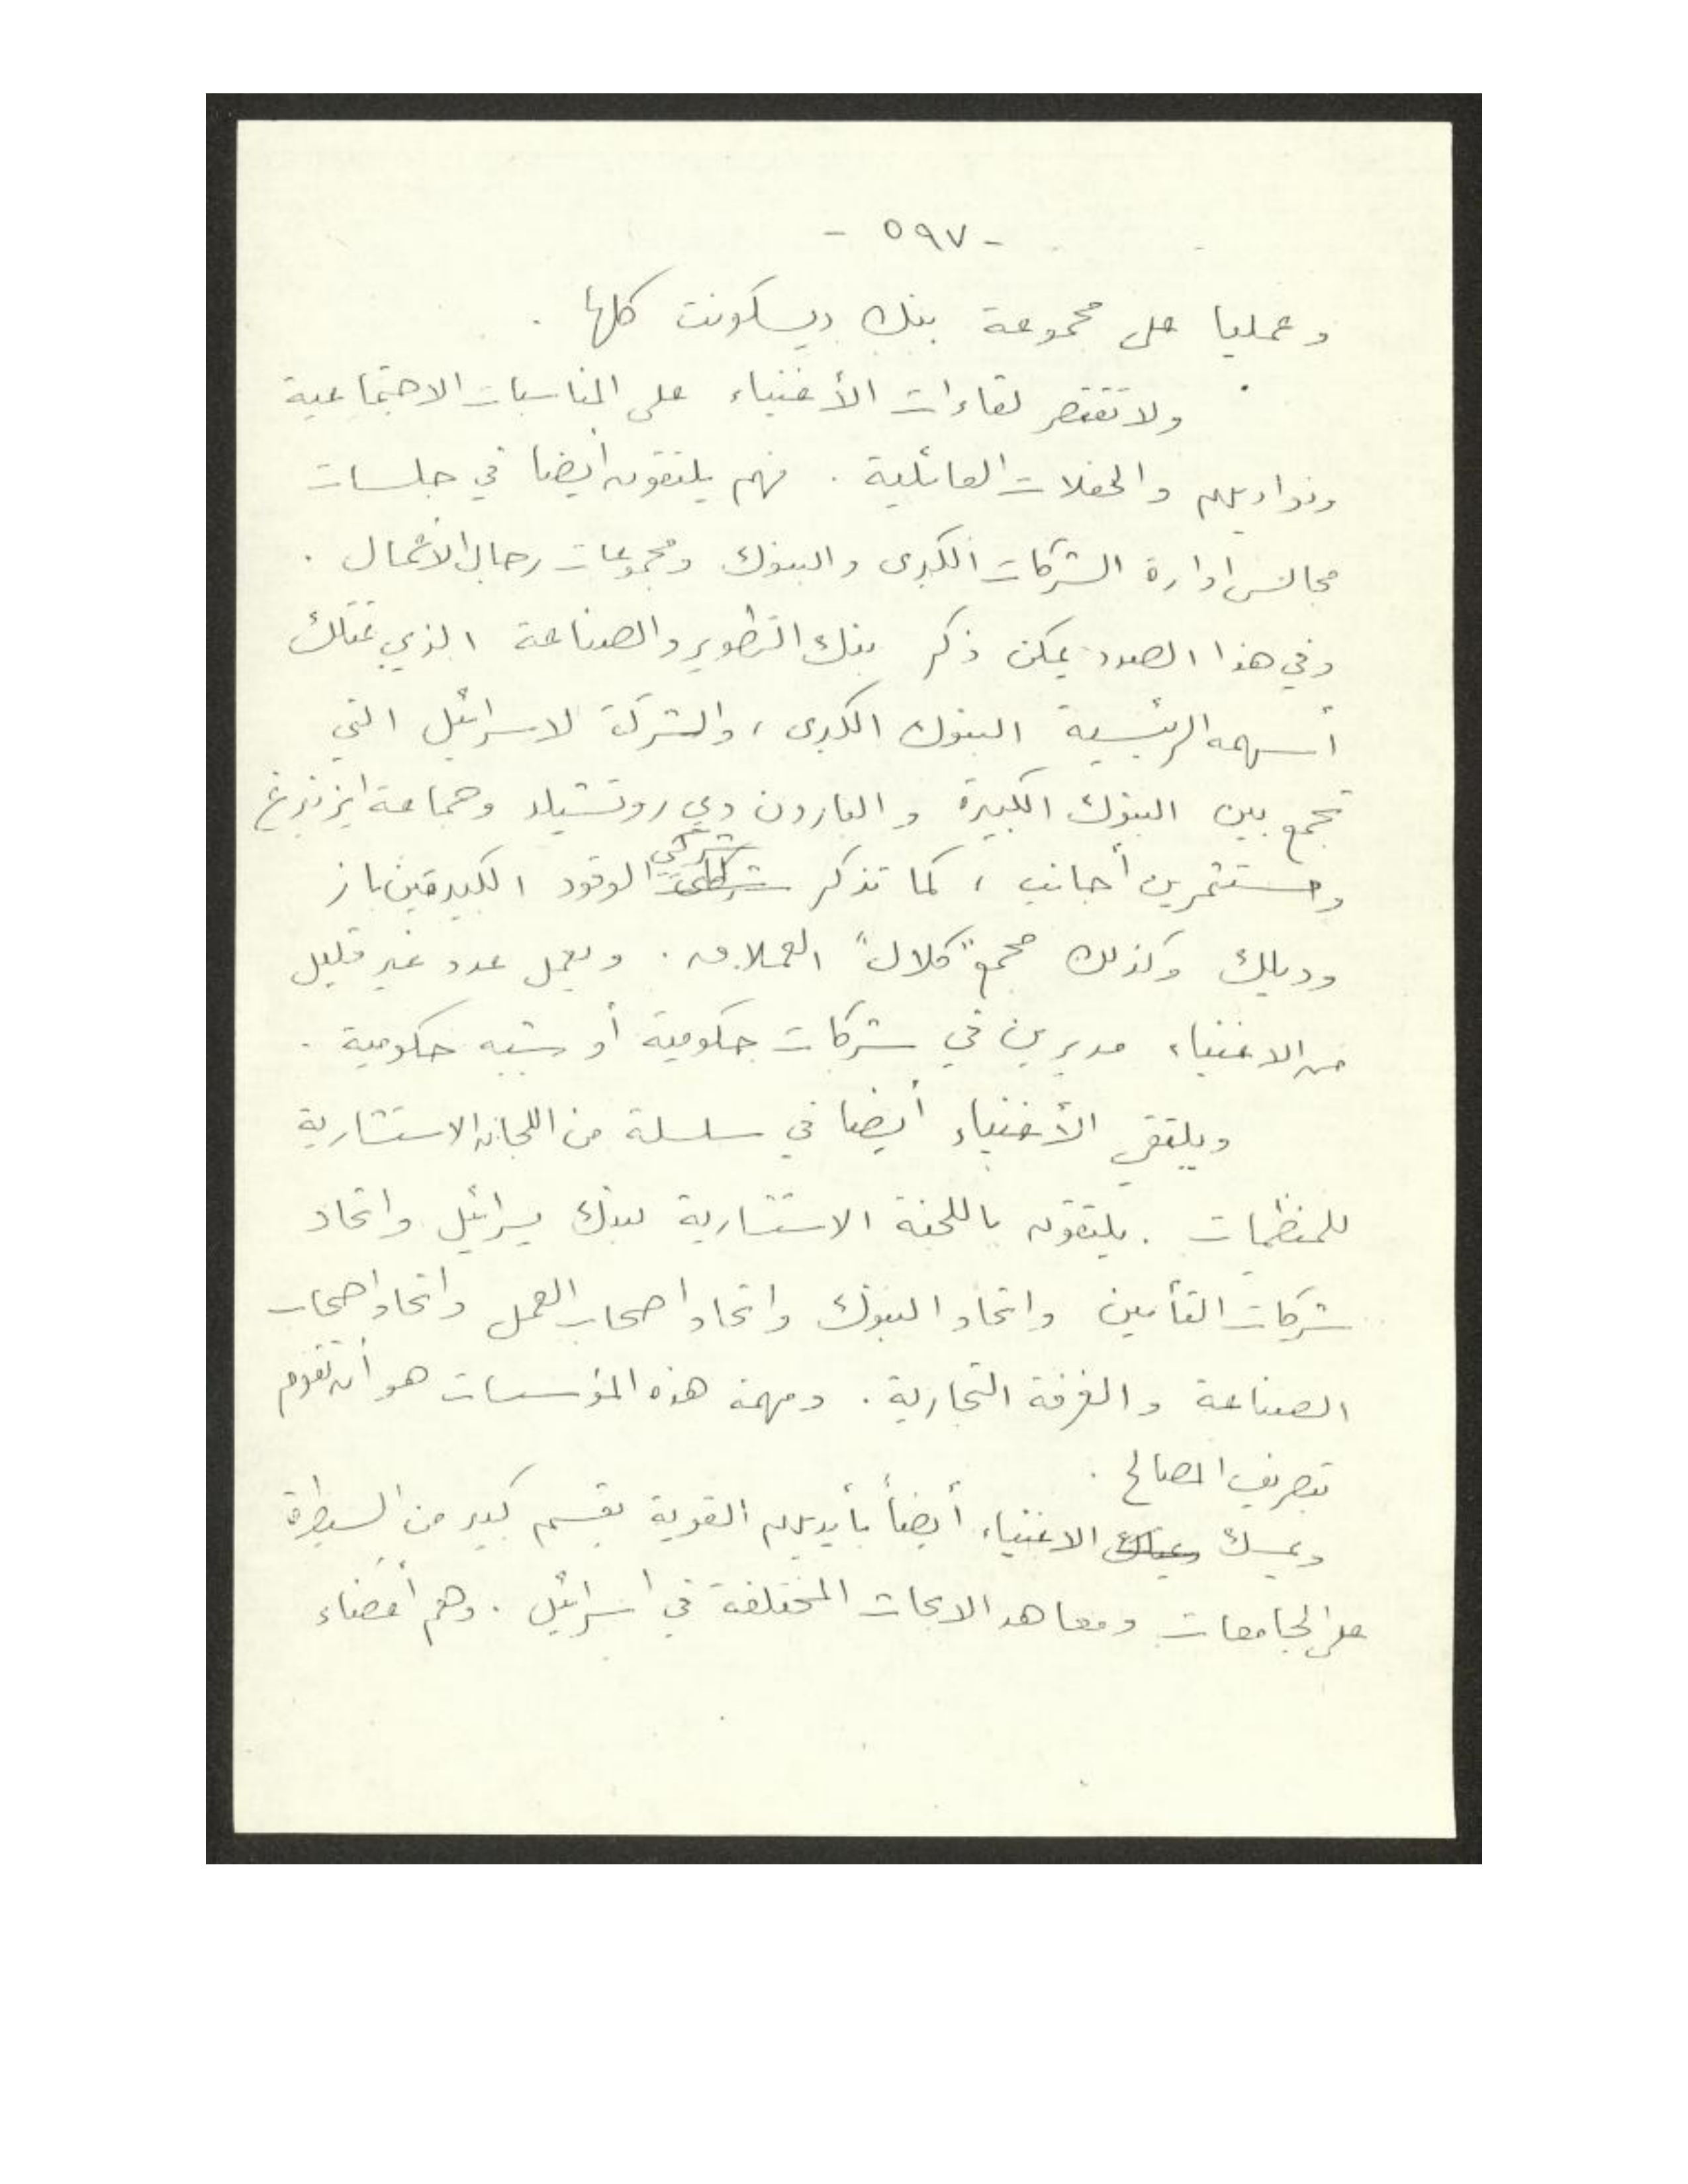 - ٥٩٧ -
وعمليا على مجموعة بنك ديسكونت كلها .
ولا تقتصر لقاءات الأغنياء على المناسبات الاجتماعية
ونواديهم والحفلات العائلية . فهم يلتقون أيضا في جلسات
مجالس ادارة الشركات الكبرى والبنوك ومجموعات رجال الاعمال .
وفي هذا الصدد يمكن ذكر بنك التطوير والصناعة الذي تمتلك
أسهمه الرئيسية البنوك الكبرى ، والشركة لاسرائيل التي
تجمع بين البنوك الكبيرة والبارون دي روتشيلد وجماعة ايزنبرغ
ومستثمرين أجانب ، كما تذكر شركتي الوقود الكبيرتين باز
وديلك وكذلك مجمع "كلال" العملاق . ويعمل عدد غير قليل
من الاغنياء مديرين في شركات حكومية أو شبه حكومية .
ويلتقي الأغنياء أيضا في سلسلة من اللجان الاستشارية
للمنظمات . يلتقون باللجنة الاستشارية لبنك يسرائيل واتحاد
شركات التأمين واتحاد البنوك واتحاد اصحاب العمل واتحاد اصحاب
الصناعة والغرفة التجارية . ومهمة هذه المؤسسات هو أن تقوم
بتصريف المصالح .
ويمسك الاغنياء أيضاً بأيديهم القوية بقسم كبير من السيطرة
على الجامعات ومعاهد الابحاث المختلفة في اسرائيل . وهم أعضاء